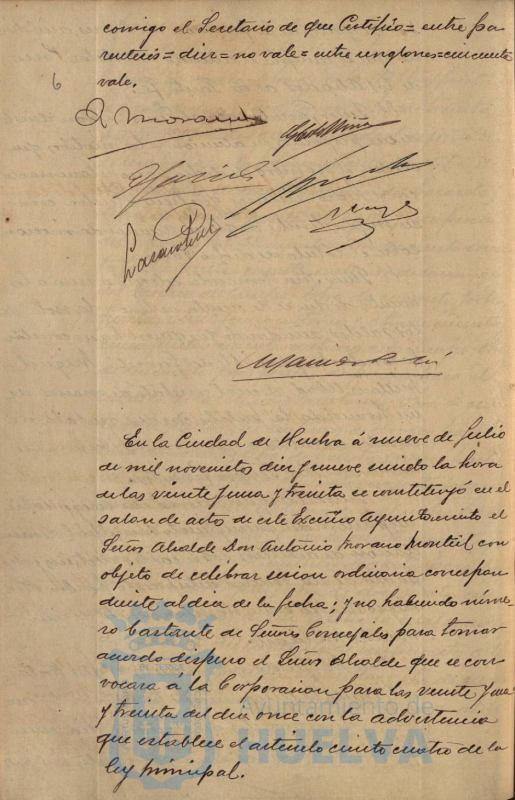 comigo el Secretario de que Certifico = entre pa-
rentesis = diez = no vale = entre renglones = cincuenta
vale.
6
A. Morano
En la Ciudad de Huelva á nueve de Julio
de mil novecientos diez y nueve siendo la hora
de las veinte y una y treinta se constituyó en el
salon de acto de este Excmo Ayuntamiento el
Señor Alcalde Don Antonio Morano Montiel con
objeto de celebrar sesion ordinaria correspon
diente al dia de la fecha; y no habiendo núme-
ro bastante de Señores Concejales para tomar
acuerdo dispuso el Señor Alcalde que se con-
vocara á la Corporacion para las veinte y una
y treinta del dia once con la advertencia
que establece el articulo ciento cuatro de la
ley municipal.
Ayuntamiento de
HUELVA